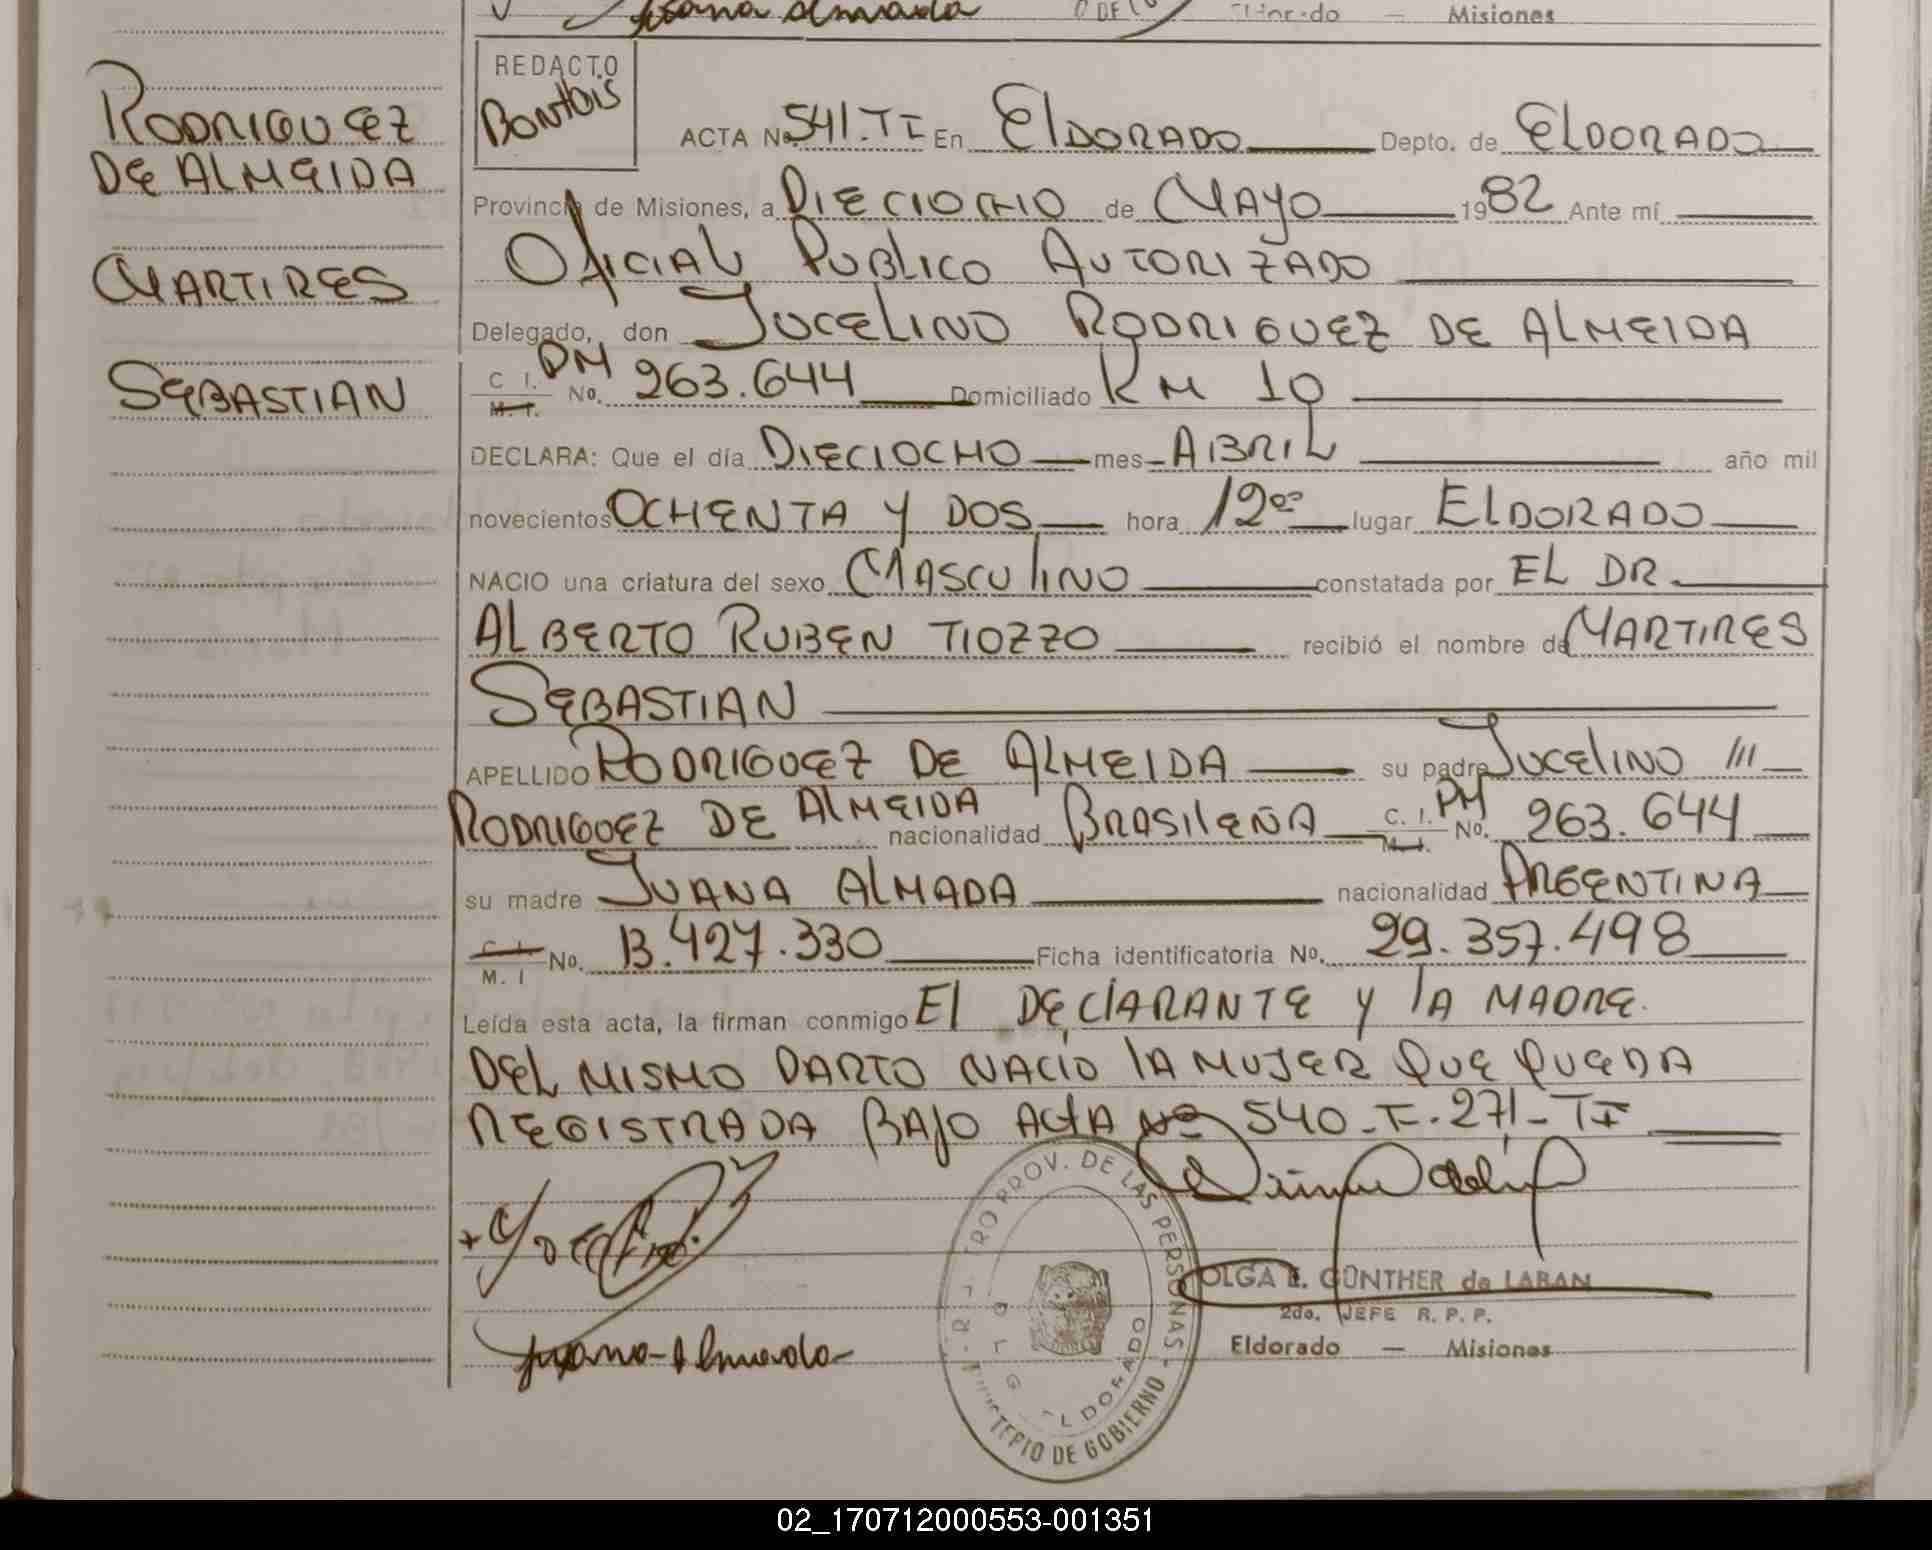 Juana Almada Eldorado — Misiones
RODRIGUEZ
DE ALMEIDA
MARTIRES
SEBASTIAN
REDACTO
ACTA No. 541.TI En ElDORADO Depto. de ELDORADO
Provincia de Misiones, a DIECIOCHO de MAYO 1982 Ante mí
OfICIAL PUBLICO AUTORIZADO
Delegado, don JUCELINO RODRIGUEZ DE ALMEIDA
C. I. M. I. DM No. 263.644 Domiciliado KM 10
DECLARA: Que el día DIECIOCHO mes ABRIL año mil
novecientos OCHENTA Y DOS hora 12⁰⁰ lugar ELDORADO
NACIO una criatura del sexo MASCULINO constatada por EL DR.
ALBERTO RUBEN TIOZZO recibió el nombre de MARTIRES
SEBASTIAN
APELLIDO RODRIGUEZ DE ALMEIDA su padre JUCELINO ///
RODRIGUEZ DE ALMEIDA nacionalidad BRASILEÑA C. I. M. I. DM No. 263.644
su madre JUANA ALMADA nacionalidad ARGENTINA
C. I. M. I No. 13.427.330 Ficha identificatoria No. 29.357.498
Leída esta acta, la firman conmigo El DEClARANTE Y lA MADRE.
DEL MISMO PARTO NACIO lA MUJER QUE QUEDA
REGISTRADA BAJO ACTA No 540-F.271-TI
PROV. DE LAS PERSONAS
ELDORADO
MINISTERIO DE GOBIERNO
OLGA E. GÜNTHER de LABAN
2do. JEFE R. P. P.
Eldorado — Misiones
Juana Almada
02_170712000553-001351